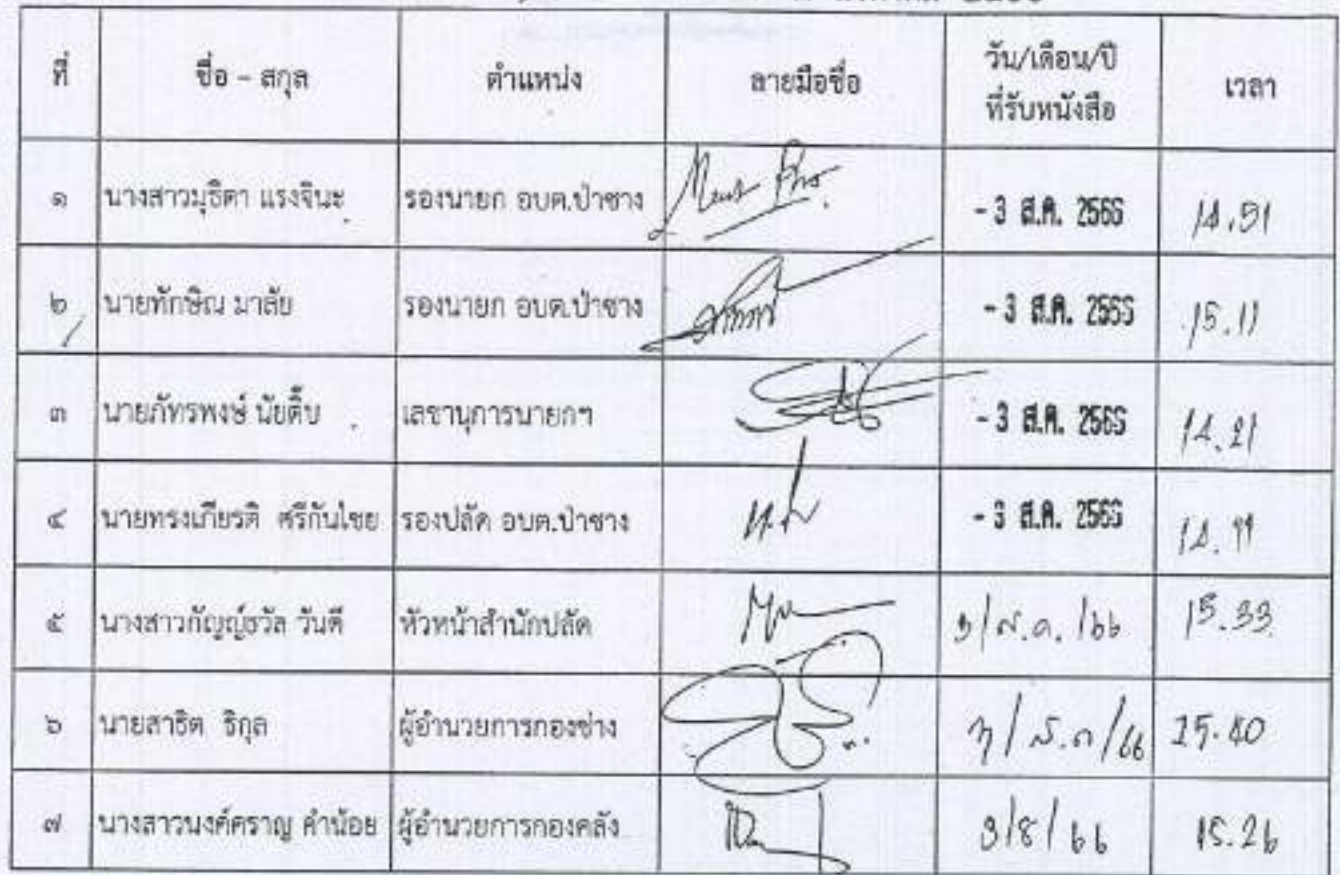 ที่ ชื่อ - สกุล ตำแหน่ง ลายมือชื่อ วัน/เดือน/ปี ที่รับหนังสือ เวลา
๑ นางสาวมุธิตา แรงจินะ รองนายก อบต.ป่าซาง - 3 ส.ค. 2566 14.51
๒ นายทักษิณ มาลัย รองนายก อบต.ป่าซาง - 3 ส.ค. 2566 15.11
๓ นายภัทรพงษ์ นัยติ๊บ เลขานุการนายกฯ - 3 ส.ค. 2566 14.21
๔ นายทรงเกียรติ ศรีกันไชย รองปลัด อบต.ป่าซาง - 3 ส.ค. 2566
๕ นางสาวกัญญ์ธวัล วันดี หัวหน้าสำนักปลัด 3/ส.ค./66 15.33
๖ นายสาธิต ธิกุล ผู้อำนวยการกองช่าง 3/ส.ค/66 15.40
๗ นางสาวนงค์คราญ คำน้อย ผู้อำนวยการกองคลัง 3/8/66 15.26